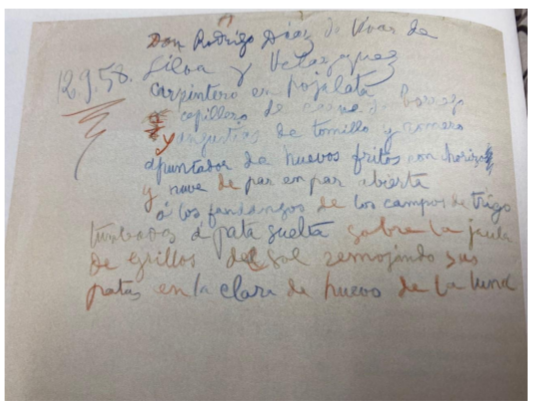 Don Rodrigo Díaz de Vivar de
12.9.58. Silva y Velazquez
carpintero en hojalata
capillero de carne de borrego
y injustias de tomillo y romero
apuntador de huevos fritos con chorizo
y nave de par en par abierta
á los fandangos de los campos de trigo
tumbados á pata suelta sobre la jaula
de grillos del sol remojando sus
patas en la clara de huevos de la luna